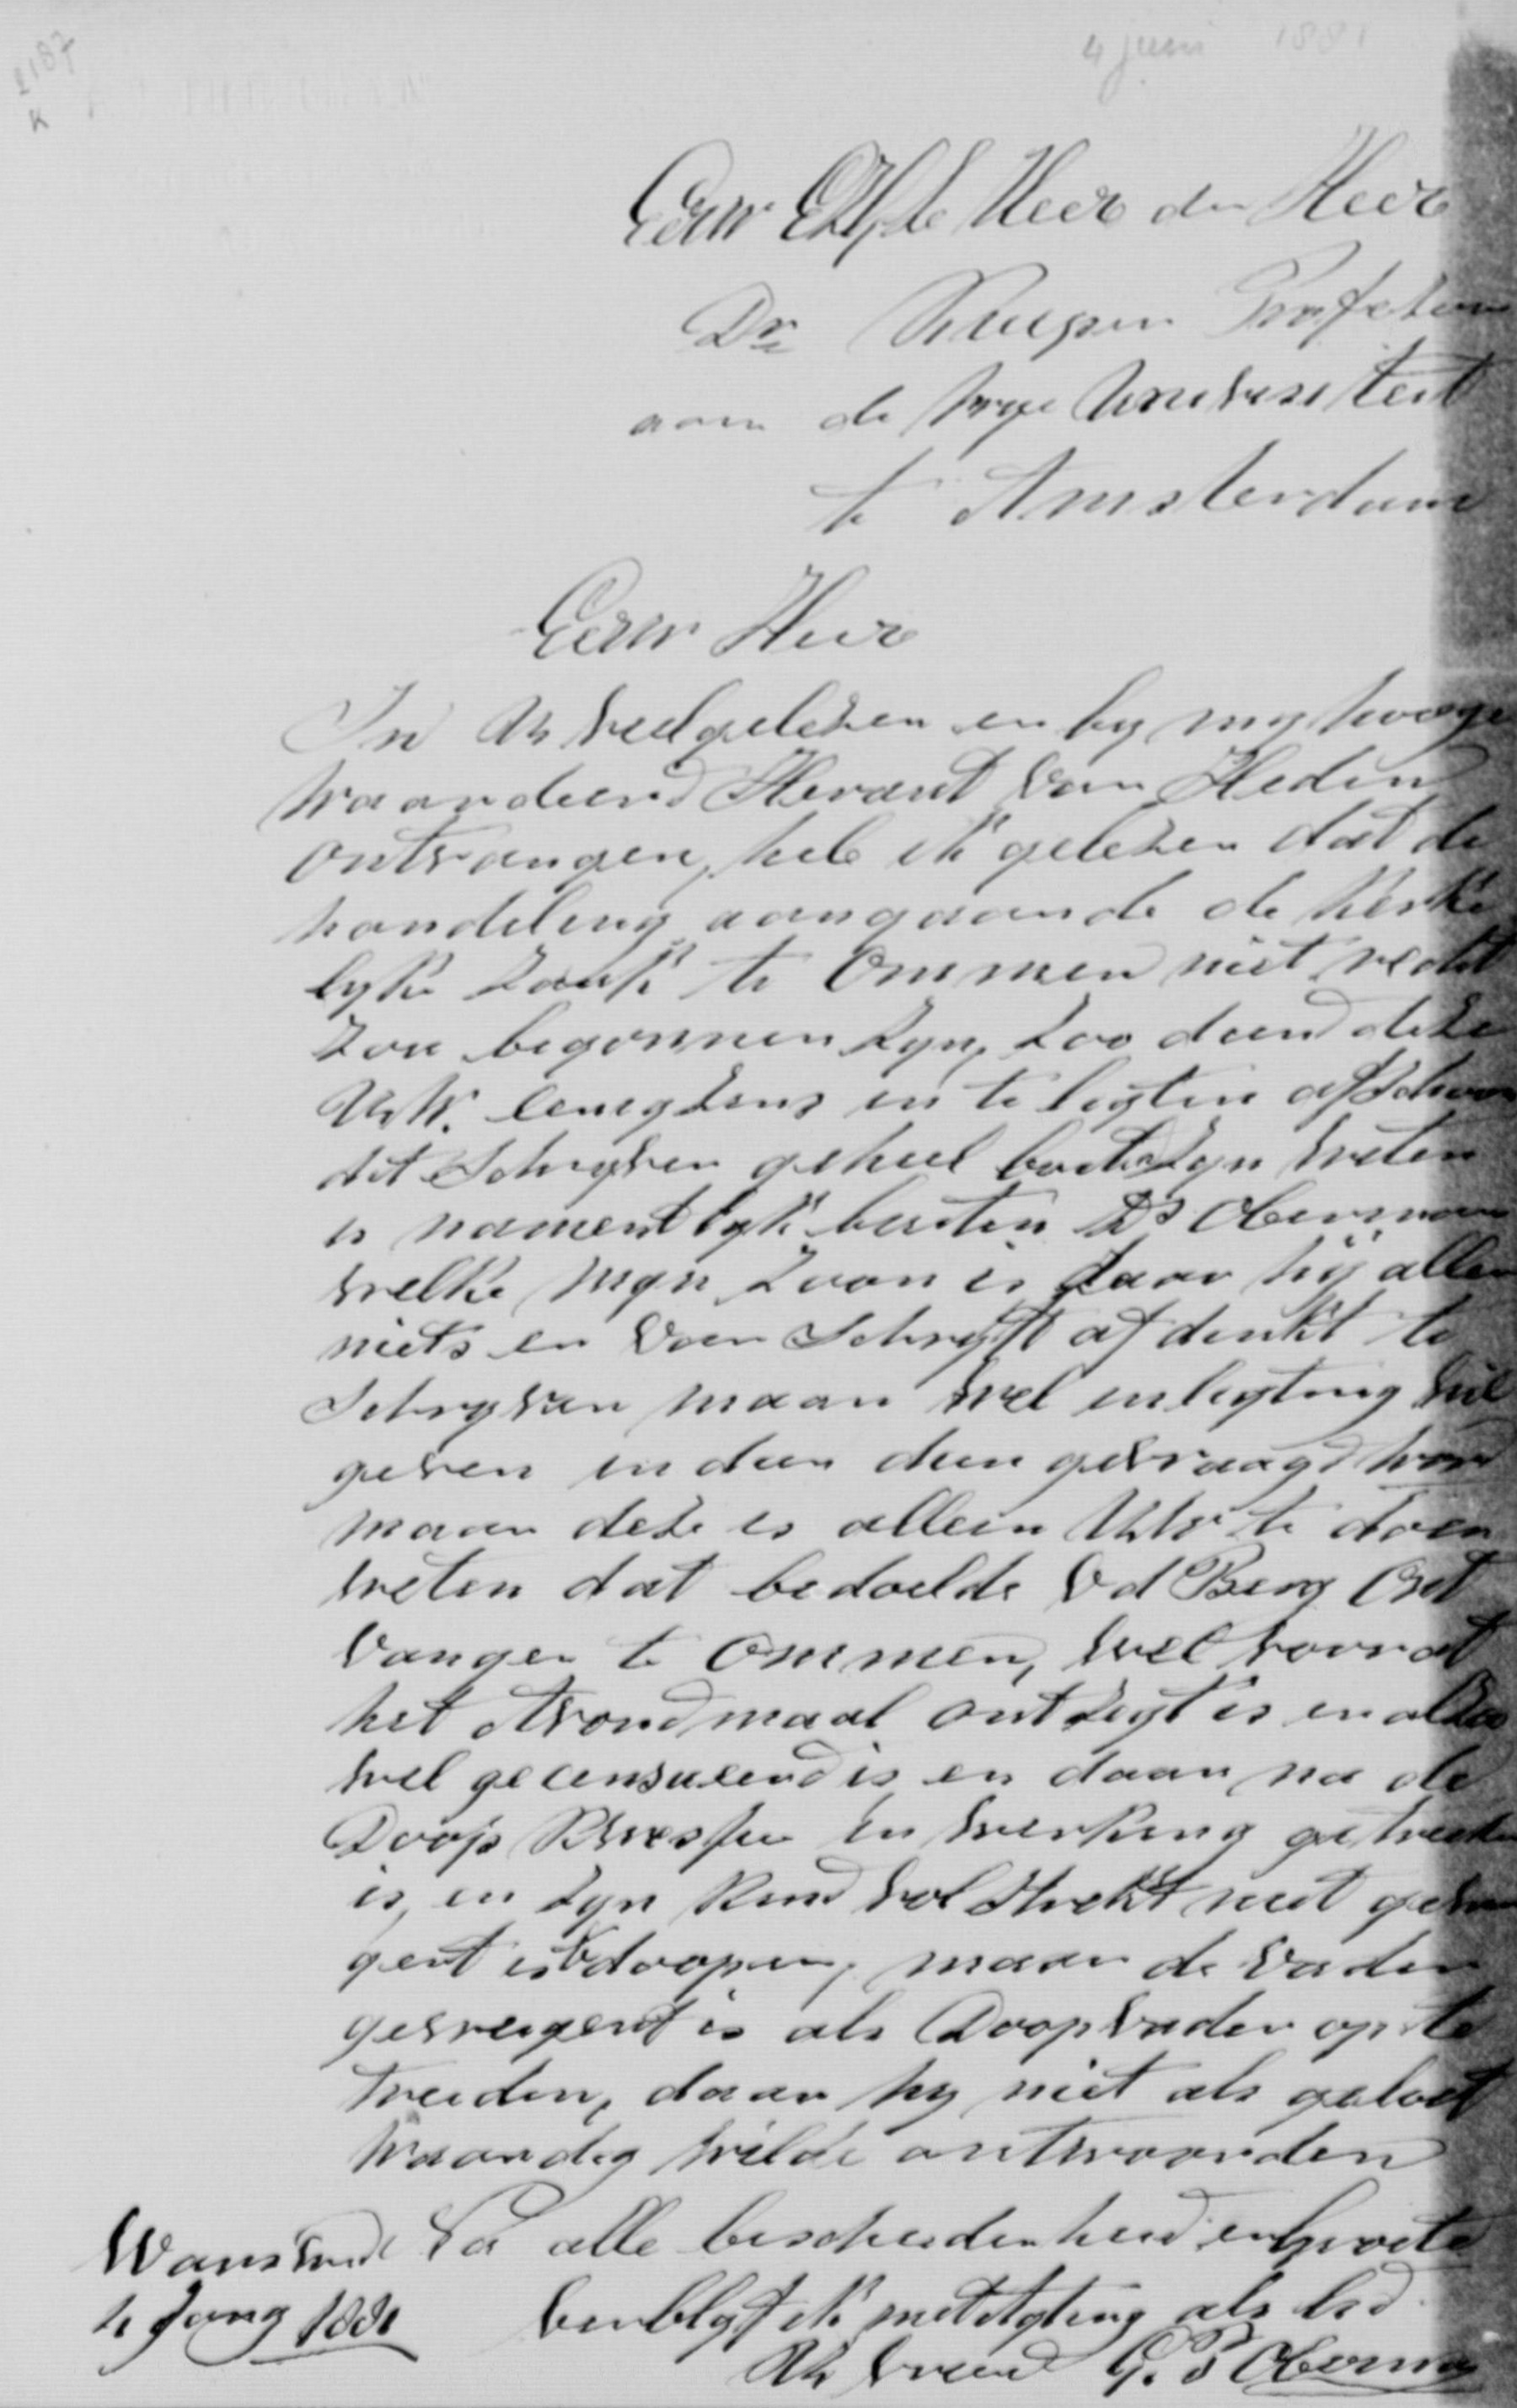 2187
K
4 juni 1881
Eerw Heer den Heer
Dr Kuyper Profeter
aan de vrye Universiteit
te Amsterdam
Eerw Heer
In Uw veelgelezen en by my hooge
waardeerd Heraut van Heden
ontvangen, heb ik gelezen dat de
handeling aangaande de kerke
lyke zaak te Ommen niet recht
zou begonnen zyn, zoo diend deze
UW. eenigzins in te ligten ofschoon
dit Schryven geheel buiten zyn weten
is namentlyk buiten Ds Oberman
welke myn Zoon is daar hij alle
niets en van Schryft af denkt te
Schryven maar wel inligting wil
geven indien deen gevraagd word
maar deze is alleen UW te doen
weten dat bedoelde vd Berg Ont
vanger te Ommen, wel voor dat
het Avondmaal ontzegt is en
wel gecensureerd is en daar na de
Doop kwestie in werking getreden
is, en zyn kind volstrekt niet gewei
gert is te doopen, maar de vader
geweigerd is als Doopvader op te
treeden, daar hy niet als geloof
waardig wilde antwoorden
Na alle bescheidenheid en groete
Wanswerd
4 Juny 1881
verblyf ik met Agting als bed
Uw vriend G. P Oberman